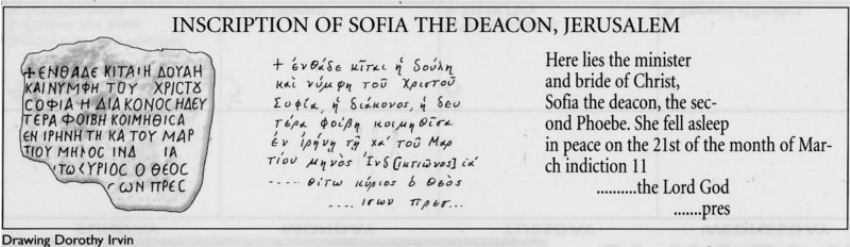 INSCRIPTION OF SOFIA THE DEACON, JERUSALEM
+ ΕΝΘΑΔΕ ΚΙΤΑΙ Η ΔΟΥΛΗ
ΚΑΙ ΝΥΜΦΗ ΤΟΥ ΧΡΙΣΤȢ
CΟΦΙΑ Η ΔΙΑΚΟΝΟC Η ΔΕΥ
ΤΕΡΑ ΦΟΙΒΗ ΚΟΙΜΗΘΙCΑ
ΕΝ ΙΡΗΝΗ ΤΗ ΚΑ ΤΟΥ ΜΑΡ
ΤΙΟΥ ΜΗΝΟC ΙΝΔ ΙΑ
ΙΤΩ ΚΥΡΙΟC Ο ΘΕΟC
CΩΝ ΠΡΕC
+ ἐνθάδε κῖται ἡ δούλη
καὶ νύμφη τοῦ Χριστοῦ
Σοφία, ἡ διάκονος, ἡ δευ
τέρα φοίβη κοιμηθῖσα
ἐν ἰρήνῃ τῇ κα' τοῦ Μαρ
τίου μηνὸς Ἰνδ[ικτιῶνος] ια'
.... θίτω κύριος ὁ θεὸς
.... ισων πρεσ...
Here lies the minister
and bride of Christ,
Sofia the deacon, the sec-
ond Phoebe. She fell asleep
in peace on the 21st of the month of Mar-
ch indiction 11
..........the Lord God
.......pres
Drawing Dorothy Irvin